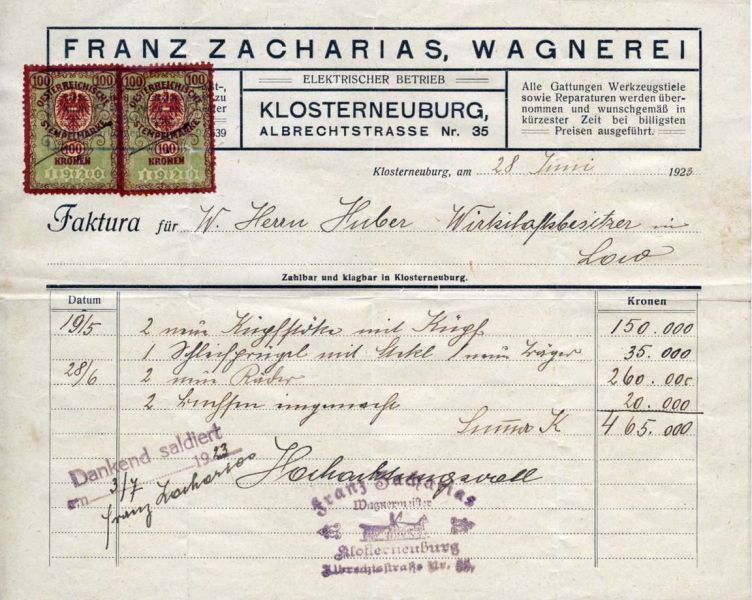 FRANZ ZACHARIAS, WAGNEREI
100 100
OESTERREICHISCHE STEMPELMARKE
100 KRONEN
1920
100 100
OESTERREICHISCHE STEMPELMARKE
100 KRONEN
1920
ELEKTRISCHER BETRIEB
KLOSTERNEUBURG,
ALBRECHTSTRASSE Nr. 35
Alle Gattungen Werkzeugstiele
sowie Reparaturen werden über-
nommen und wunschgemäß in
kürzester Zeit bei billigsten
Preisen ausgeführt.
Klosterneuburg, am 28 Juni 1923
Faktura für W. Herrn Huber Wirtschaftsbesitzer in
Zahlbar und klagbar in Klosterneuburg.
Datum Kronen
19/5 2 neue mit 150.000
1 mit neue Träger 35.000
28/6 2 neue Räder 260.000
2 Buchsen eingemacht 20.000
Summa K 465.000
Dankend saldiert
am 3/7 1923
Franz Zacharias
Hochachtungsvoll
Franz Zacharias
Wagnermeister
Klosterneuburg
Albrechtsstraße Nr. 35.